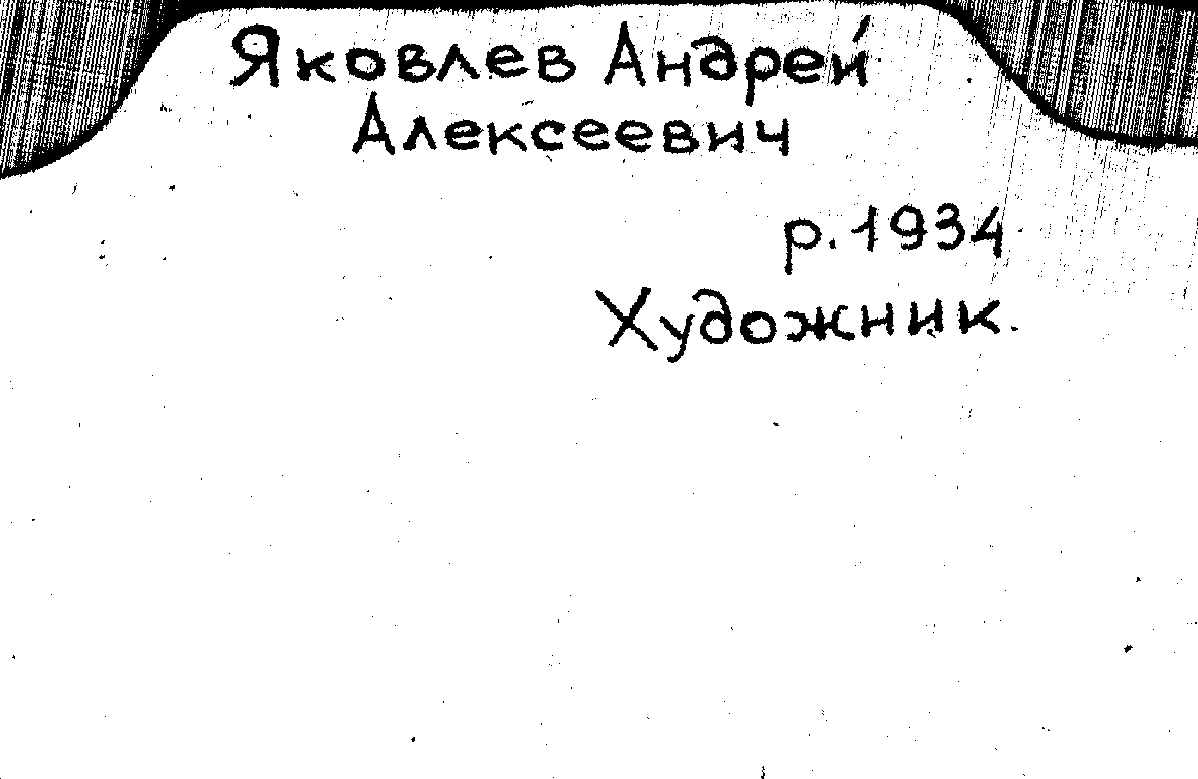 Яковлев Андрей
Алексеевич
р. 1934
Художник.